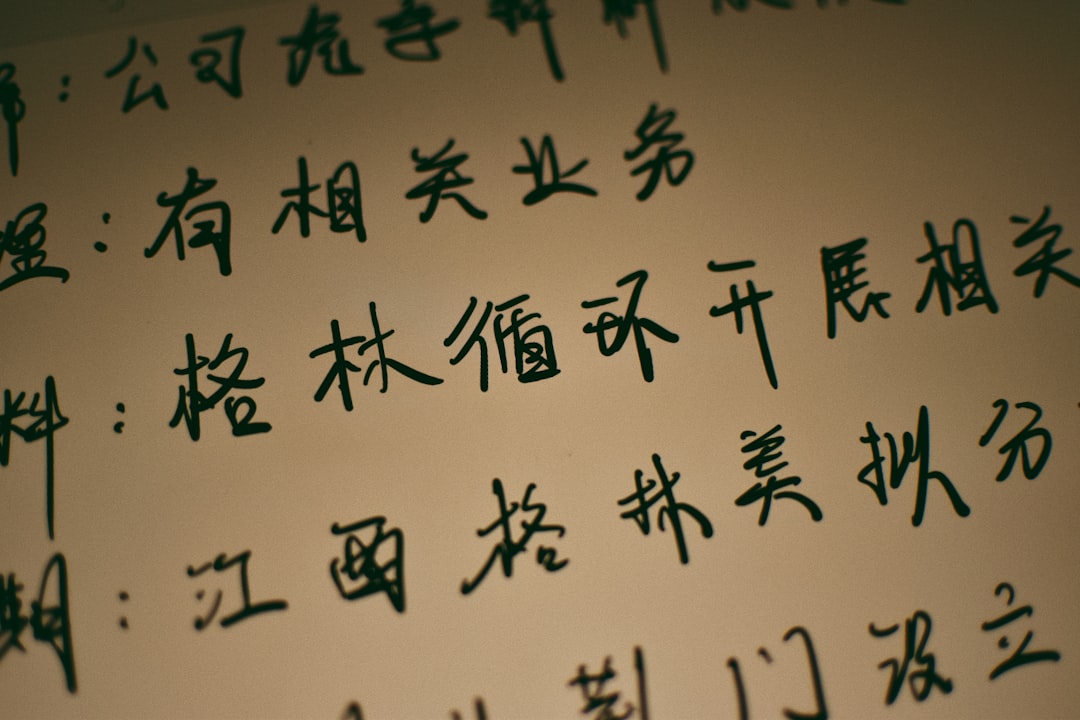 ：公司
：有相关业务
料：格林循环开展相关
期：江西格林美拟分
荆门设立